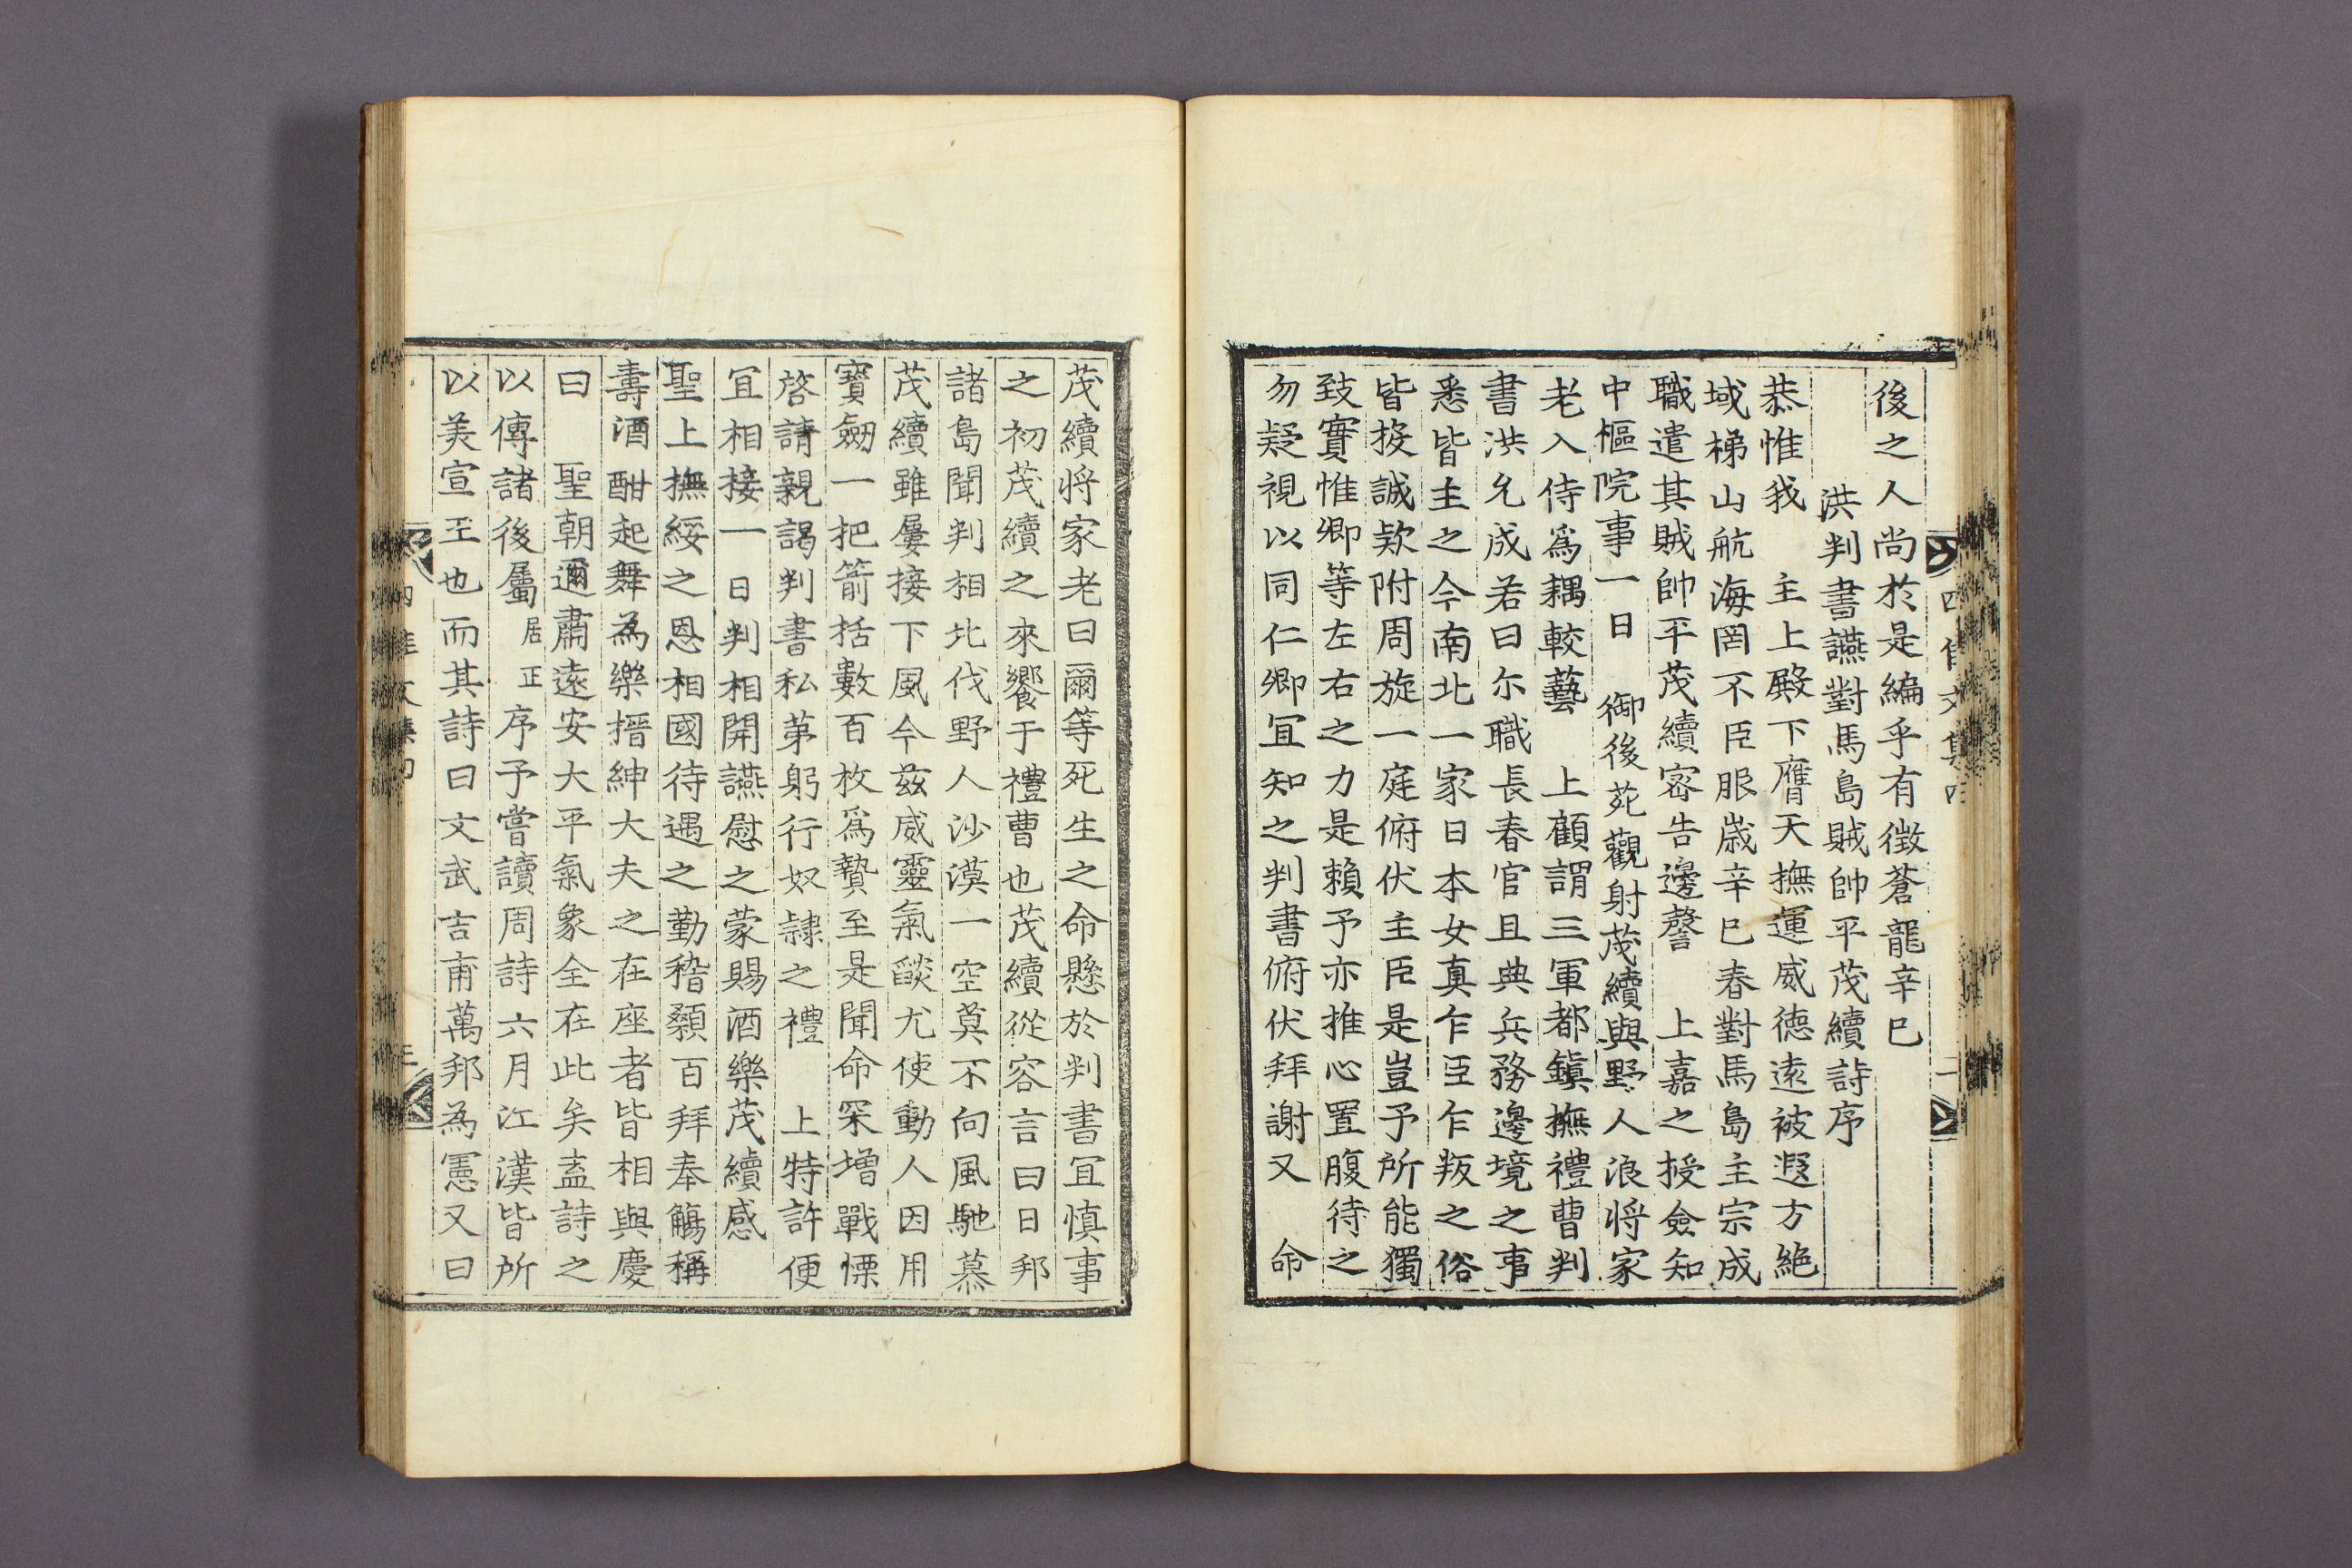 四佳文集四
二
後之人尚於是編乎有徵蒼龍辛巳
洪判書讌對馬島賊帥平茂續詩序
恭惟我 主上殿下膺天撫運威德遠被遐方絕
域梯山航海罔不臣服歲辛巳春對馬島主宗成
職遣其賊帥平茂續密告邊警 上嘉之授僉知
中樞院事一日 御後苑觀射茂續與野人浪將家
老入侍爲耦較藝 上顧謂三軍都鎭撫禮曹判
書洪允成若曰尒職長春官且典兵務邊境之事
悉皆主之今南北一家日本女真乍臣乍叛之俗
皆投誠欵附周旋一庭俯伏主臣是豈予所能獨
致實惟卿等左右之力是賴予亦推心置腹待之
勿疑視以同仁卿冝知之判書俯伏拜謝又 命
茂續将家老曰爾等死生之命懸於判書冝慎事
之初茂續之來饗于禮曹也茂續從容言曰日邦
諸島聞判相北伐野人沙漠一空莫不向風馳慕
茂續雖屢接下風今兹威靈氣燄尤使動人因用
寶劒一把箭括數百枚爲贄至是聞命罙增戰慄
啓請親謁判書私第躬行奴隷之禮 上特許便
冝相接一日判相開讌慰之蒙賜酒樂茂續感
聖上撫綏之恩相國待遇之勤稽顙百拜奉觴稱
壽酒酣起舞為樂搢紳大夫之在座者皆相與慶
曰 聖朝邇肅遠安大平氣象全在此矣盍詩之
以傳諸後屬居正序予嘗讀周詩六月江漢皆所
以美宣王也而其詩曰文武吉甫萬邦為憲又曰
四佳文集四
三